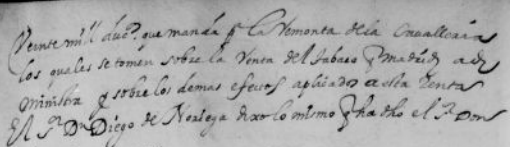 Veinte mill duc.s que manda p.a la Remonta de la Cavalleria
los quales se tomen sobre la Venta del tabaco q Madrid a d
ministra y sobre los demas efectos aplicados a esta Renta
El S.r Dn Diego de Noriega dixo lo mismo q ha dho el S.r Don